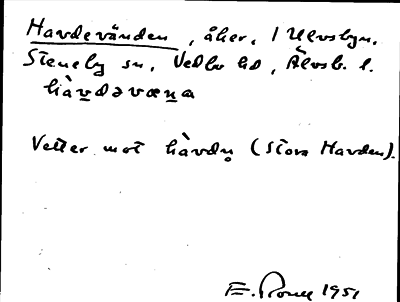 Havdevänden, åker, i Ulvsbyn.
Steneby sn, Vedbo hd, Älvsb. l.
hàvdəvæna
Vetter mot hàvdn̥ (Stora Havden).
E. 1951